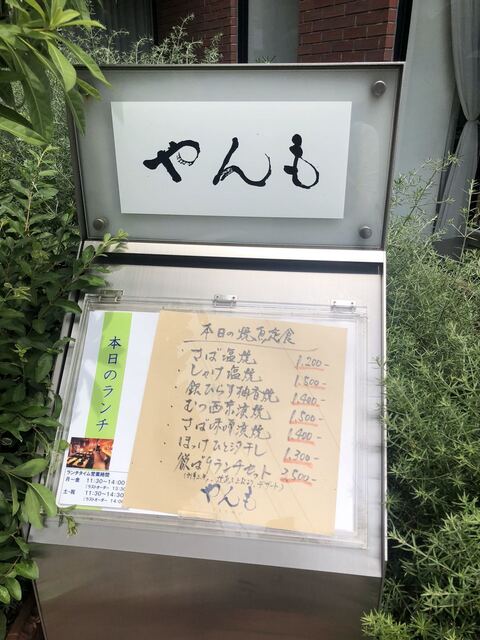 やんも
本日のランチ
ランチタイム営業時間
月～金 11:30～14:00
(ラストオーダー 13:30
土・祝 11:30～14:30
(ラストオーダー 14:00
本日の焼魚定食
・さば塩焼 1,200-
・しゃけ塩焼 1,500-
・銀ひらす柚香焼 1,400-
・むつ西京漬焼 1,500-
・さば味噌漬焼 1,400-
・ほっけひと汐干し 1,300-
・銀ばランチセット 2,500-
やんも